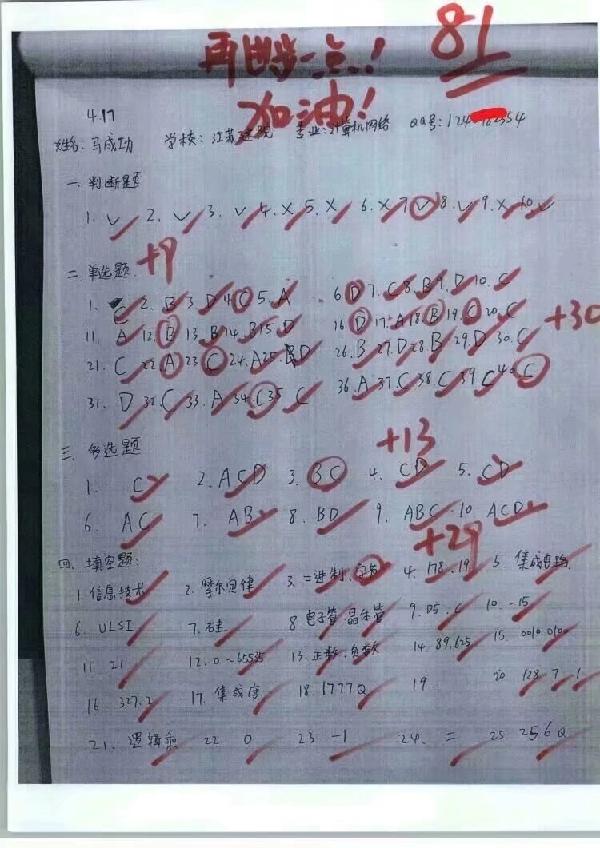 再进步一点! 81
加油!
4.17
姓名: 马成功 学校: 江苏建院 专业: 计算机网络 QQ号: 124
一. 判断题
1. √ 2. √ 3. √ 4. × 5. × 6. × 7. √ 8. √ 9. × 10. √
+9
二 单选题.
1. C 2. B 3. D 4. C 5. A 6 D 7. C 8. B 9. D 10. C
11. A 12. B 13. B 14. B 15. D 16 D 17. A 18 B 19 C 20. C
+30
21. C 22 A 23 C 24. A 25. BD 26. B 27. D 28. B 29. D 30. C
31. D 32. C 33. A 34 C 35 C 36. A 37. C 38 C 39 C 40. C
三. 多选题 +13
1. C 2. ACD 3. BC 4. CD 5. CD
6. AC 7. AB 8. BD 9. ABC 10. ACD
+29
四. 填空题:
1. 信息技术 2. 摩尔定律 3. 二进制 4. 178. 19 5. 集成电路
6. ULSI 7. 硅 8 电子管 晶体管 9. 05. 10. -15
11. 21 12. 0~65535 13. 正数. 负数 14. 89.625 15. 0010 010
16 327.2 17. 集成度 18. 1777Q 19 20 128. 7. 1
21. 逻辑 22 0 23 -1 24. = 25 256Q